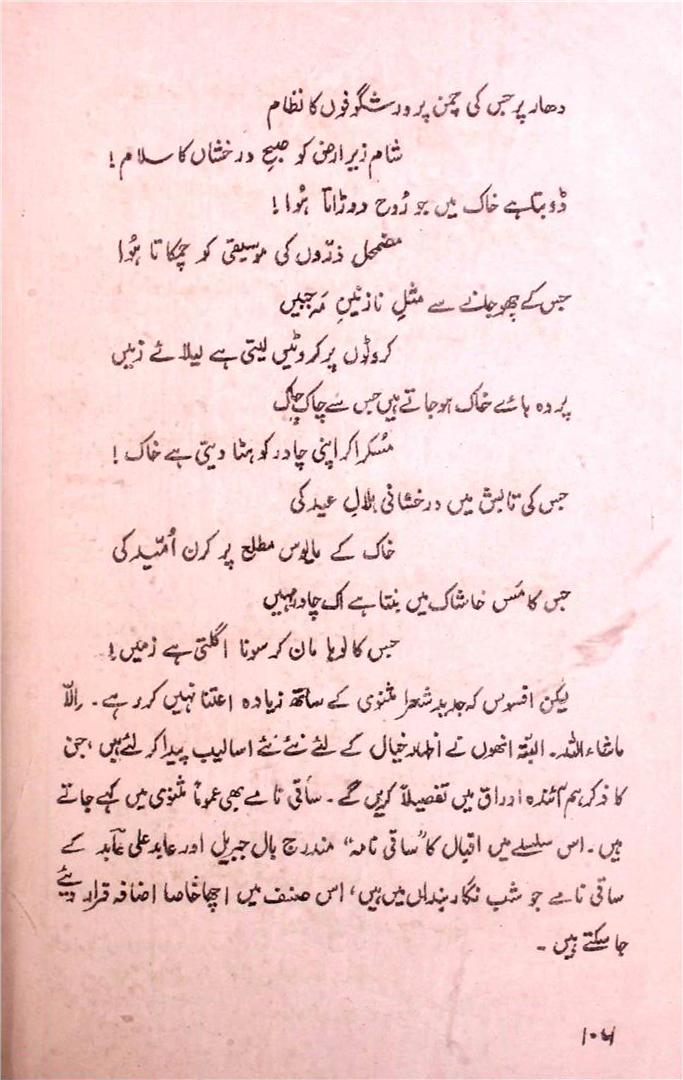 دھار پر جس کی چمن پرور شگوفوں کا نظام
شام زیرِ ارض کو صبحِ درخشاں کا سلام!
ڈوبتا ہے خاک میں جو رُوح دوڑاتا ہُوا!
مضمحل ذرّوں کی موسیقی کو چمکاتا ہُوا
جس کے چھو جانے سے مثلِ نازنینِ مَہ جبیں
کروٹوں پر کروٹیں لیتی ہے لیلائے زمیں
پردہ ہائے خاک ہو جاتے ہیں جس سے چاک چاک
مُسکرا کر اپنی چادر کو ہٹا دیتی ہے خاک!
جس کی تابش میں درخشانی ہلالِ عید کی
خاک کے مایوس مطلع پر کرن اُمّید کی
جس کا مَس خاشاک میں بنتا ہے اک چادر مہیں
جس کا لوہا مان کر سونا اگلتی ہے زمیں!
لیکن افسوس کہ جدید شعرا مثنوی کے ساتھ زیادہ اعتنا نہیں کر رہے۔ اِلّا
ماشاءاللہ۔ البتہ انھوں نے اظہارِ خیال کے لئے نئے نئے اسالیب پیدا کر لئے ہیں، جن
کا ذکر ہم آئندہ اوراق میں تفصیلاً کریں گے۔ ساقی نامے بھی عموماً مثنوی میں کہے جاتے
ہیں۔ اس سلسلے میں اقبال کا "ساقی نامہ" مندرج بال جبریل اور عابد علی عابد کے
ساقی نامے جو شب نگار بنداں میں ہیں، اس صنف میں اچھا خاصا اضافہ قرار دیئے
جا سکتے ہیں۔
۱۰۶